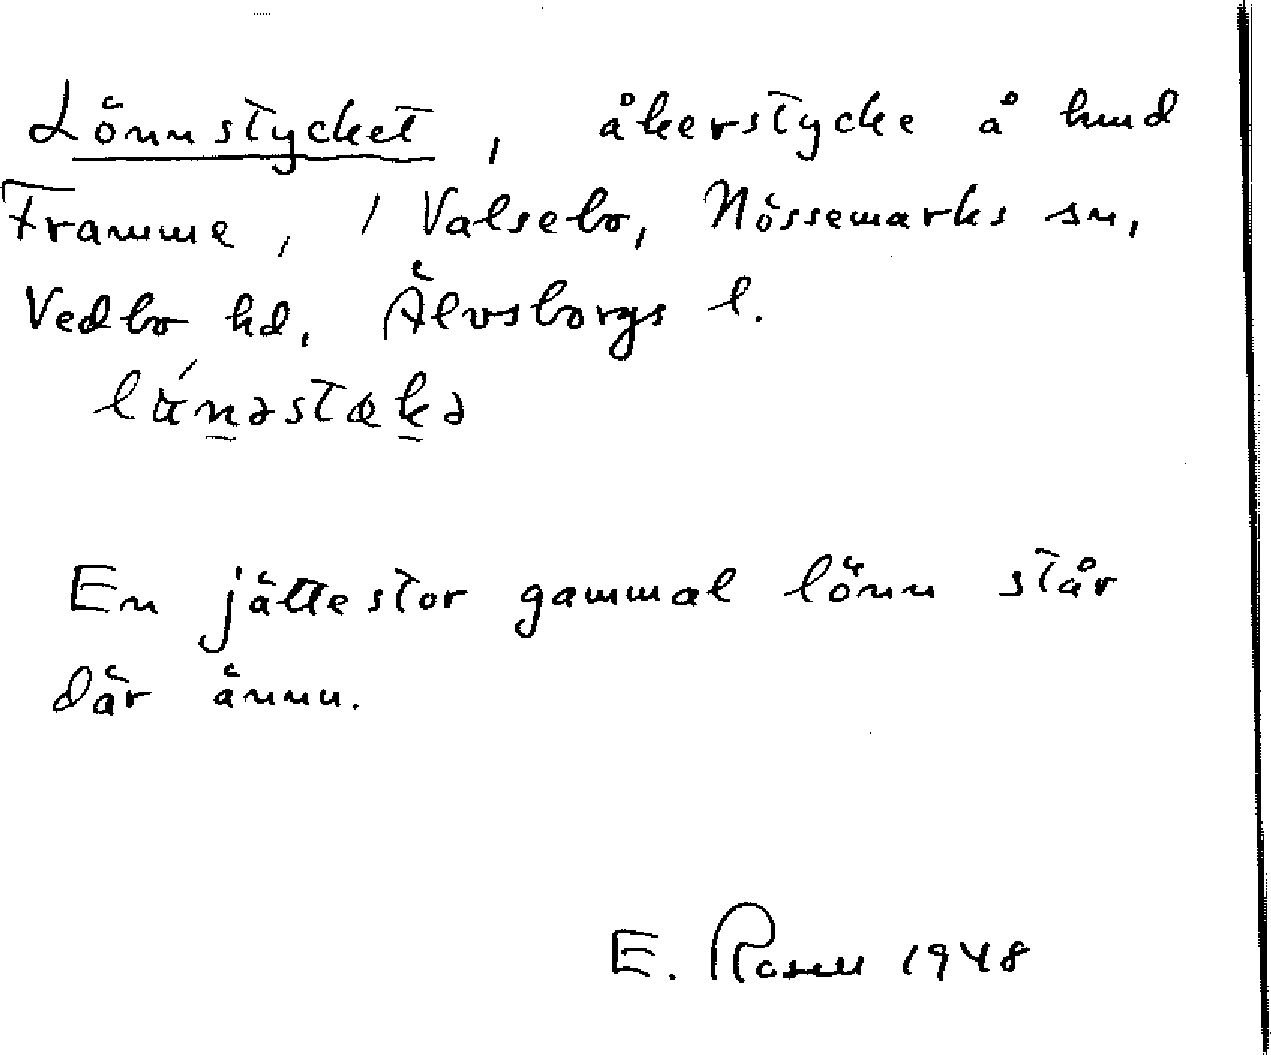 Lönnstycket, åkerstycke å hmd
Framme, / Valsebo, Nössemarks sn,
Vedbo hd, Älvsborgs l.
En jättestor gammal lönn står
där ännu.
E. Rosell 1948